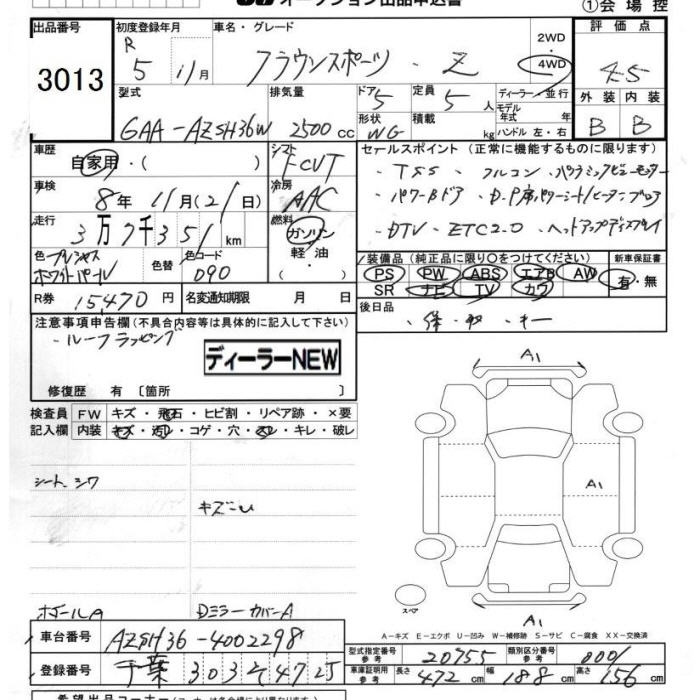 オークション出品申込書
①会場控
出品番号 初度登録年月 車名・グレード 評価点
3013
R 5 11月 クラウンスポーツ・Z 2WD 4WD 4.5
型式 排気量 ドア 定員 ディーラー・並行
GAA-AZSH36W 2500cc 5 5人 モデル年式 年
形状 積載 外装 内装
WG kg ハンドル 左・右 B B
車歴 シフト セールスポイント (正常に機能するものに限ります)
自家用・( ) FCVT ・TSS ・フルコン ・パノラミックビューモニター
車検 冷房 ・パワーBドア ・D.P席パワーシート/ヒーター/ブロア
8年 11月(21日) AAC ・DTV ・ETC2.0 ・ヘッドアップディスプレイ
走行 燃料
3万7千351km ガソリン
軽油
色 プレシャスホワイトパール 色替 色コード 090
装備品 (純正品に限り○をつけてください) 新車保証書
PS PW ABS エアB AW 有・無
SR ナビ TV カワ
R券 15470円 名変通知期限 月 日
後日品
・保・取・キー
注意事項申告欄 (不具合内容等は具体的に記入して下さい)
・ルーフラッピング
ディーラーNEW
修復歴 有 〔箇所 〕
検査員 FW キズ・飛石・ヒビ割・リペア跡・×要
記入欄 内装 キズ・汚れ・コゲ・穴・スレ・キレ・破レ
シート、シワ
キズ=U
ホイールA Dミラーカバー A
A1
A1
A1
スペア
A-キズ E-エクボ U-凹み W-補修跡 S-サビ C-腐食 XX-交換済
車台番号 AZSH36-4002298
型式指定番号 参考 20755 類別区分番号 参考 0001
登録番号 千葉 303 そ 4725
車庫証明用 参考 長さ 472cm 幅 188cm 高さ 156cm
希望出品コーナー